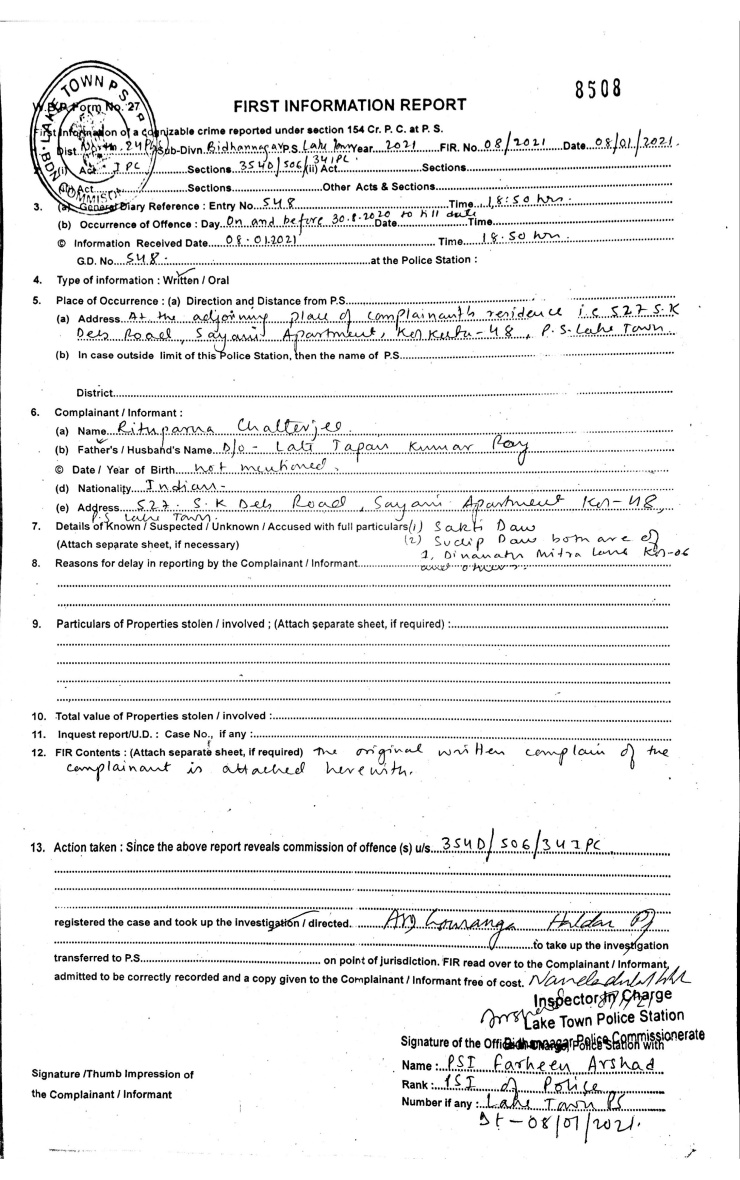 8508
TOWN P.S.
W.B.P. Form No. 27
FIRST INFORMATION REPORT
First Information of a cognizable crime reported under section 154 Cr. P. C. at P. S.
Dist. North 24 Pgs Sub-Divn. Bidhannagar P.S. Lake Town Year 2021 FIR. No. 08/2021 Date 08/01/2021.
(i) Act IPC Sections 354D/506/34 IPC (ii) Act Sections
(iii) Act Sections Other Acts & Sections
3. (a) General Diary Reference : Entry No. 548 Time 18:50 hrs.
(b) Occurrence of Offence : Day On and before 30.8.2020 to till date Date Time
© Information Received Date 08.01.2021 Time 18.50 hrs.
G.D. No. 548. at the Police Station :
4. Type of information : Written / Oral
5. Place of Occurrence : (a) Direction and Distance from P.S.
(a) Address At the adjoining place of complainant's residence i.e 527 S.K
Deb Road, Sayani Apartment, Kolkata-48, P.S. Lake Town
(b) In case outside limit of this Police Station, then the name of P.S
District
6. Complainant / Informant :
(a) Name Rituparna Chatterjee.
(b) Father's / Husband's Name D/o - Late Tapan Kumar Roy
© Date / Year of Birth not mentioned.
(d) Nationality Indian-
(e) Address 527. S.K Deb Road, Sayani Apartment Kol-48,
P.S Lake Town.
7. Details of Known / Suspected / Unknown / Accused with full particulars (1) Sakti Daw
(Attach separate sheet, if necessary) (2) Sudip Daw both are of
1, Dinanath Mitra Lane Kol-06
8. Reasons for delay in reporting by the Complainant / Informant and others.
9. Particulars of Properties stolen / involved ; (Attach separate sheet, if required) :
10. Total value of Properties stolen / involved :
11. Inquest report/U.D. : Case No., if any :
12. FIR Contents : (Attach separate sheet, if required) The original written complain of the
complainant is attached herewith.
13. Action taken : Since the above report reveals commission of offence (s) u/s. 354D/506/34 IPC
registered the case and took up the investigation / directed. ASI Gouranga Haldar
to take up the investigation
transferred to P.S. on point of jurisdiction. FIR read over to the Complainant / Informant,
admitted to be correctly recorded and a copy given to the Complainant / Informant free of cost.
Inspector In Charge
Lake Town Police Station
Bidhannagar Police Commissionerate
Signature of the Officer Police Station with
Name : PSI Farheen Arshad
Signature /Thumb Impression of
Rank : PSI of Police
the Complainant / Informant
Number if any : Lake Town PS
Dt - 08/01/2021.